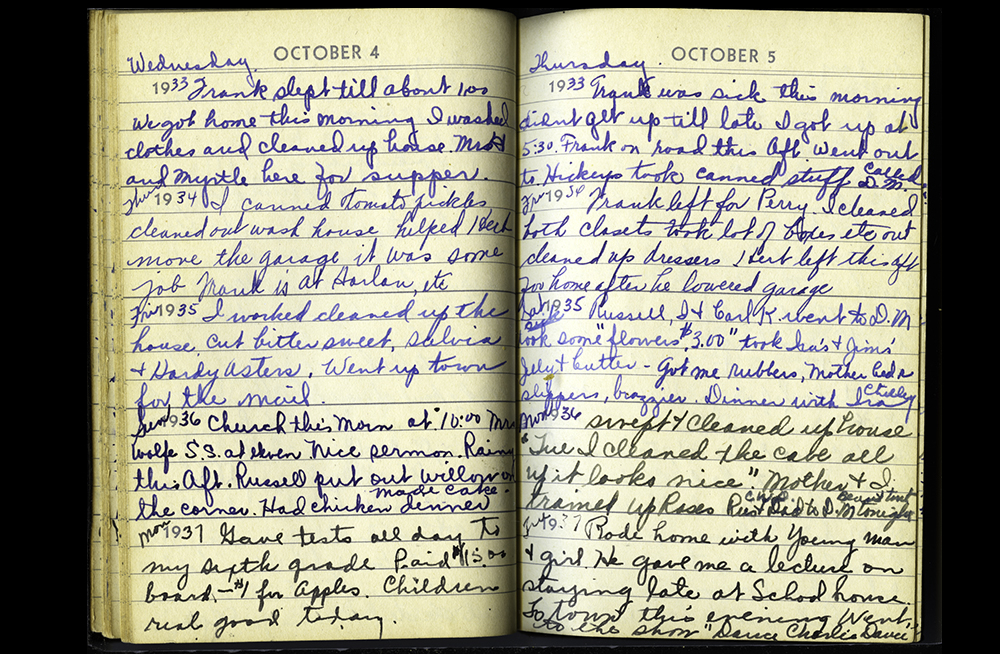 Wednesday.
OCTOBER 4
1933 Frank slept till about 1:00
We got home this morning I washed
clothes and cleaned up house. Mrs H
and Myrtle here for supper.
Thu 1934 I canned tomato pickles
cleaned out wash house helped Bert
move the garage it was some
job Frank is at Harlan, etc
Fri 1935 I worked cleaned up the
house, cut bitter sweet, selvia
& Hardy asters. Went up town
for the mail.
Sun 1936 Church this Morn at 10:00 Mrs
Wolfe S.S. at eleven. Nice sermon. Rainy
this Aft. Russell put out willow on
made cake.
the corner. Had chicken dinner
Mon 1937 Gave tests all day to
my sixth grade Paid $15.00
board, — $1 for Apples. Children
real good today.
Thursday.
OCTOBER 5
1933 Frank was sick this morning
didnt get up till late I got up at
5:30. Frank on road this Aft. Went out
Called
to Hickeys took canned stuff D.M.
Fri 1934 Frank left for Perry. I cleaned
both closets took lot of boxes etc out
cleaned up dressers Bert left this aft
for home after he lowered garage
Sat 1935 Russell, I & Carl K went to D.M
took some "flowers" "$3.00" took Ira's & Jim's
Jelly & butter - Got me rubbers, Mother bed r
slippers, brazzier. Dinner with Ira
Mon 1936 swept & Cleaned up house
"Tue I cleaned the cave all
up it looks nice." Mother & I
trained up Roses Russ & Dad to D.M tonight
1937 Rode home with Young man
& girl He gave me a lecture on
staying late at School house.
To town this evening Went
to the show "Dance Charlie Dance"